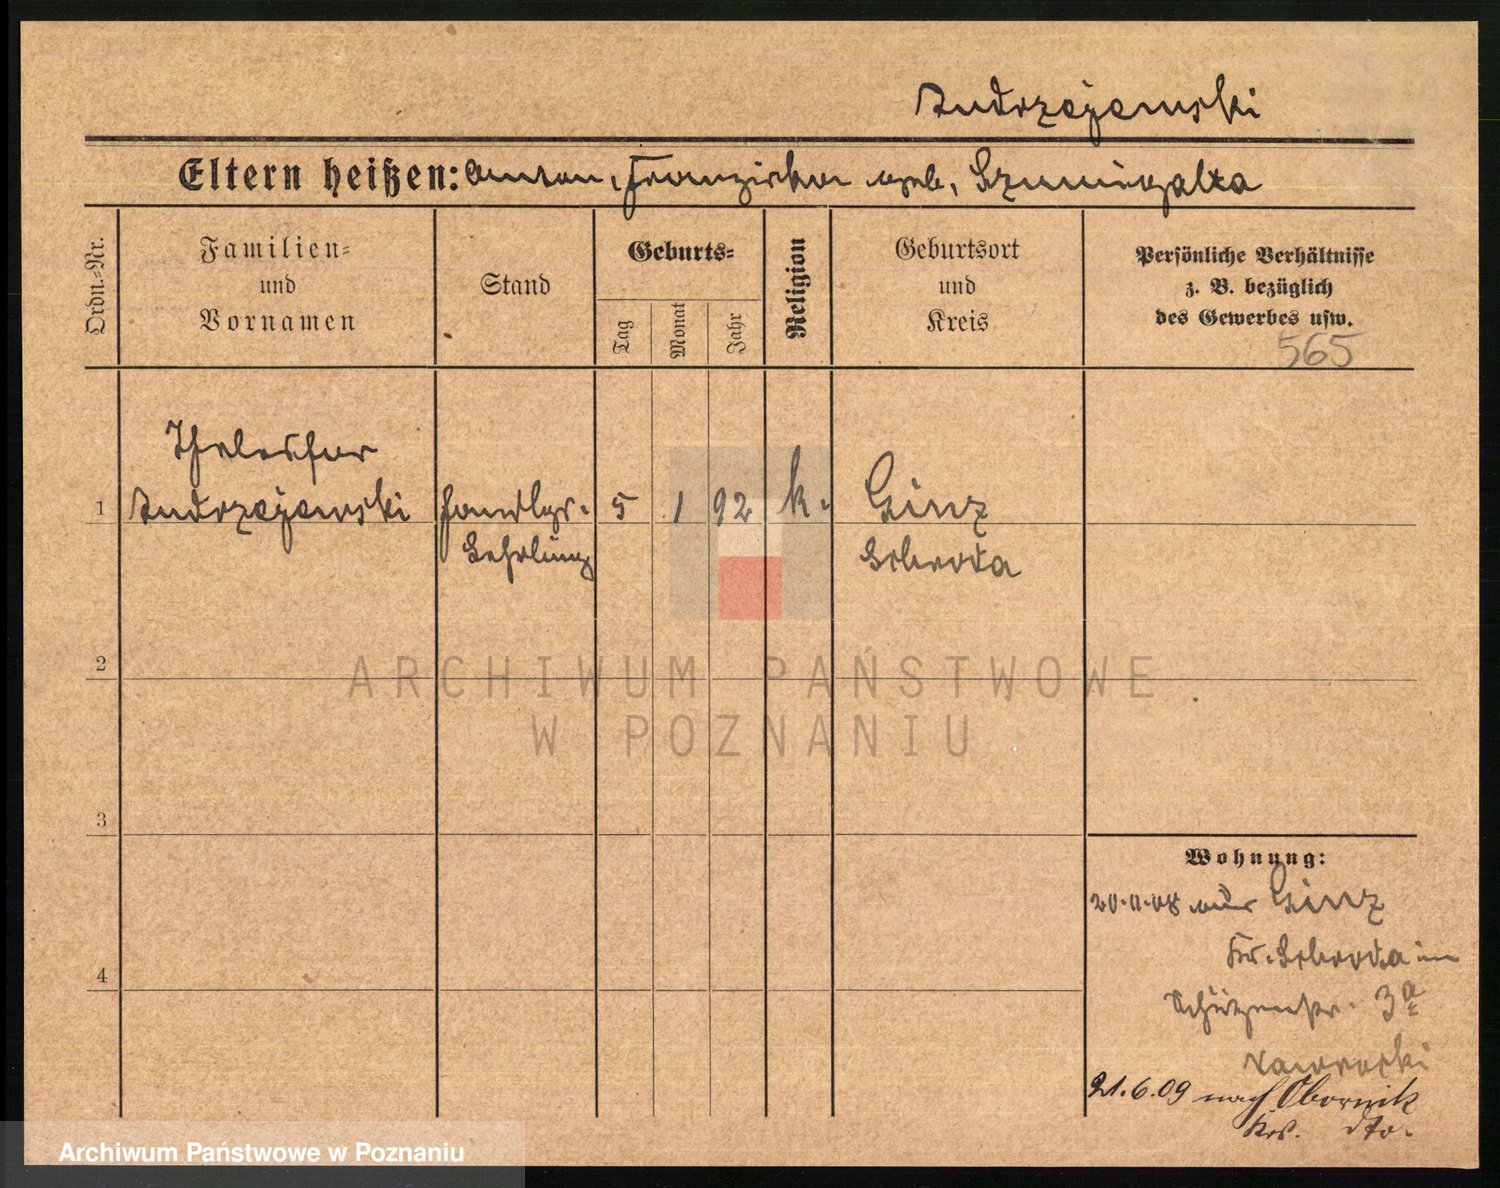 Andrzejewski
Eltern heißen: Anton, Franziska geb. Szumigalla
Ordn.-Nr.
Familien-
und
Vornamen
Stand
Geburts-
Tag
Monat
Jahr
Religion
Geburtsort
und
Kreis
Persönliche Verhältnisse
z. B. bezüglich
des Gewerbes usw.
565
1
Andrzejewski
Handlgs.
Lehrling
5 1 92 k.
Ginz
Schroda
2
3
4
ARCHIWUM PAŃSTWOWE
W POZNANIU
Wohnung:
aus Ginz
Kr. Schroda in
Schützenstr. 3a
21.6.09 nach Obornik
Krs. dto.
Archiwum Państwowe w Poznaniu